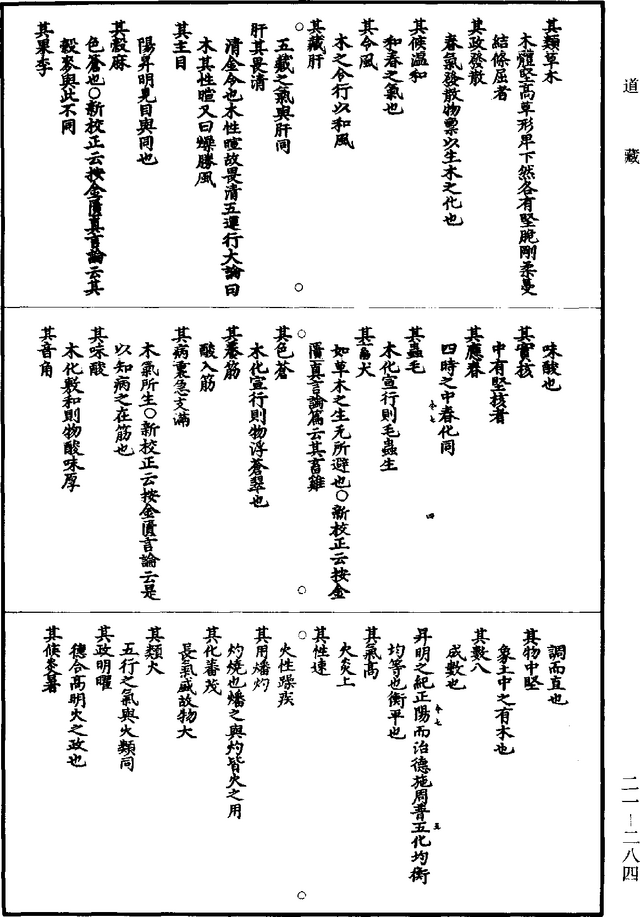 道藏
其類草木
木體堅高草形卑下然各有堅脆剛柔蔓
結條屈者
其政發散
春氣發散物稟以生木之化也
其候溫和
和春之氣也
其令風
木之令行以和風
其藏肝
五藏之氣與肝同
肝其畏清
清金令也木性暄故畏清五運行大論曰
木其性暄又曰燥勝風
其主目
陽昇明見目與同也
其穀麻
色蒼也○新校正云按金匱真言論云其
穀麥與此不同
其果李
味酸也
其實核
中有堅核者
其應春
四時之中春化同
其蟲毛
木化宣行則毛蟲生
其畜犬
如草木之生无所避也○新校正云按金
匱真言論篇云其畜雞
其色蒼
木化宣行則物浮蒼翠也
其養筋
酸入筋
其病裏急支滿
木氣所生○新校正云按金匱言論云是
以知病之在筋也
其味酸
木化敷和則物酸味厚
其音角
調而直也
其物中堅
象土中之有木也
其數八
成數也
昇明之紀正陽而治德施周普五化均衡
均等也衡平也
其氣高
火炎上
其性速
火性躁疾
其用燔灼
灼燒也燔之與灼皆火之用
其化蕃茂
長氣盛故物大
其類火
五行之氣與火類同
其政明曜
德合高明火之政也
其候炎暑
二一—二八四